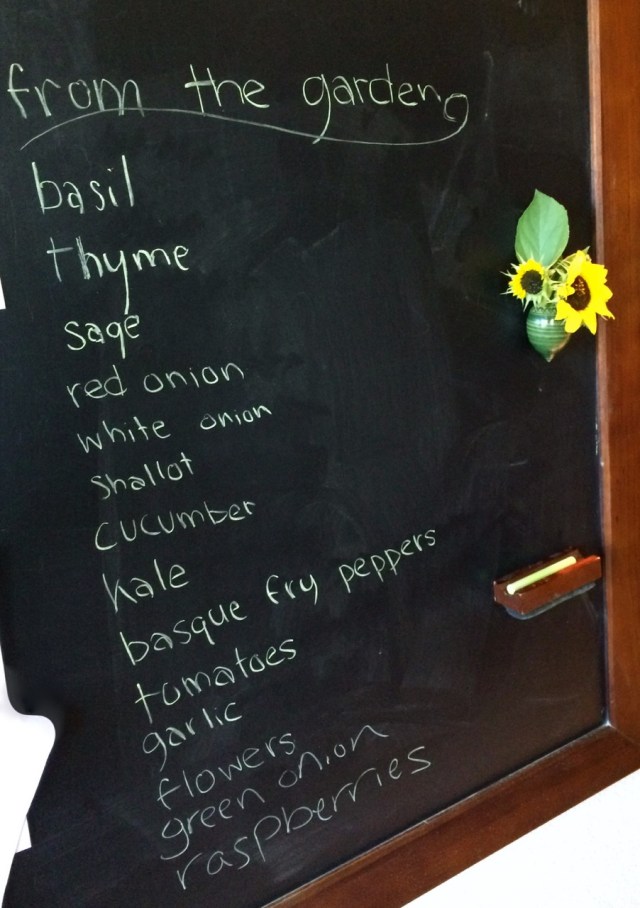 from the garden
basil
thyme
sage
red onion
white onion
shallot
cucumber
kale
basque fry peppers
tomatoes
garlic
flowers
green onion
raspberries